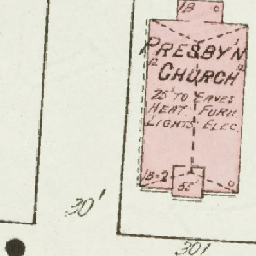 1B
PRESBY'N
CHURCH
25' TO EAVES
HEAT - FURN
LIGHTS ELEC.
1B-2
55'
30'
301